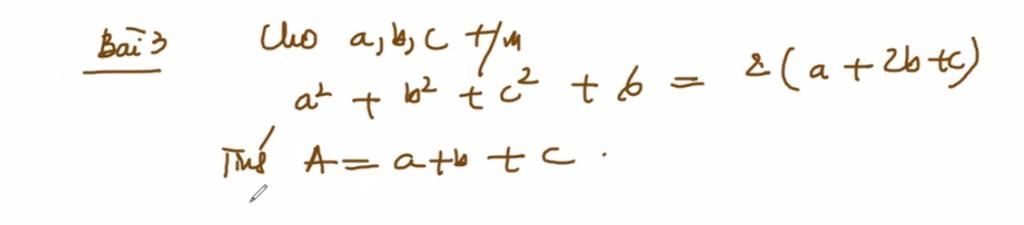 Bài 3 Cho a, b, c t/m
a² + b² + c² + 6 = 2(a + 2b + c)
Tính A = a + b + c.